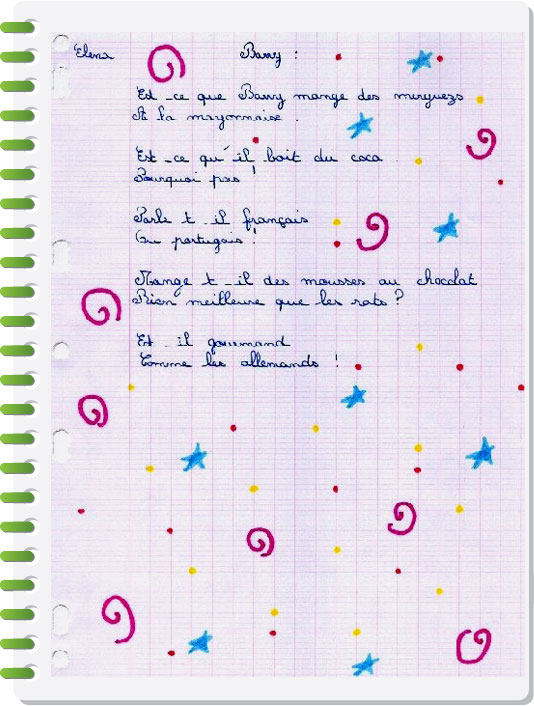 Elena Barry :
Est-ce que Barry mange des merguezs
A la mayonnaise.
Est-ce qu'il boit du coca
Pourquoi pas !
Parle t-il français
Ou portugais !
Mange t-il des mousses au chocolat
Bien meilleure que les rats ?
Est-il gourmand
Comme les allemands !